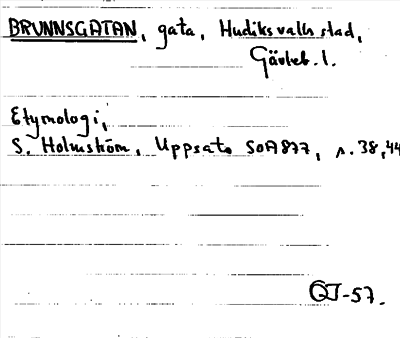 BRUNNSGATAN, gata, Hudiksvalls stad,
Gävleb. l.
Etymologi,
S. Holmström, Uppsats SOA 877, s. 38, 44
GJ-57.